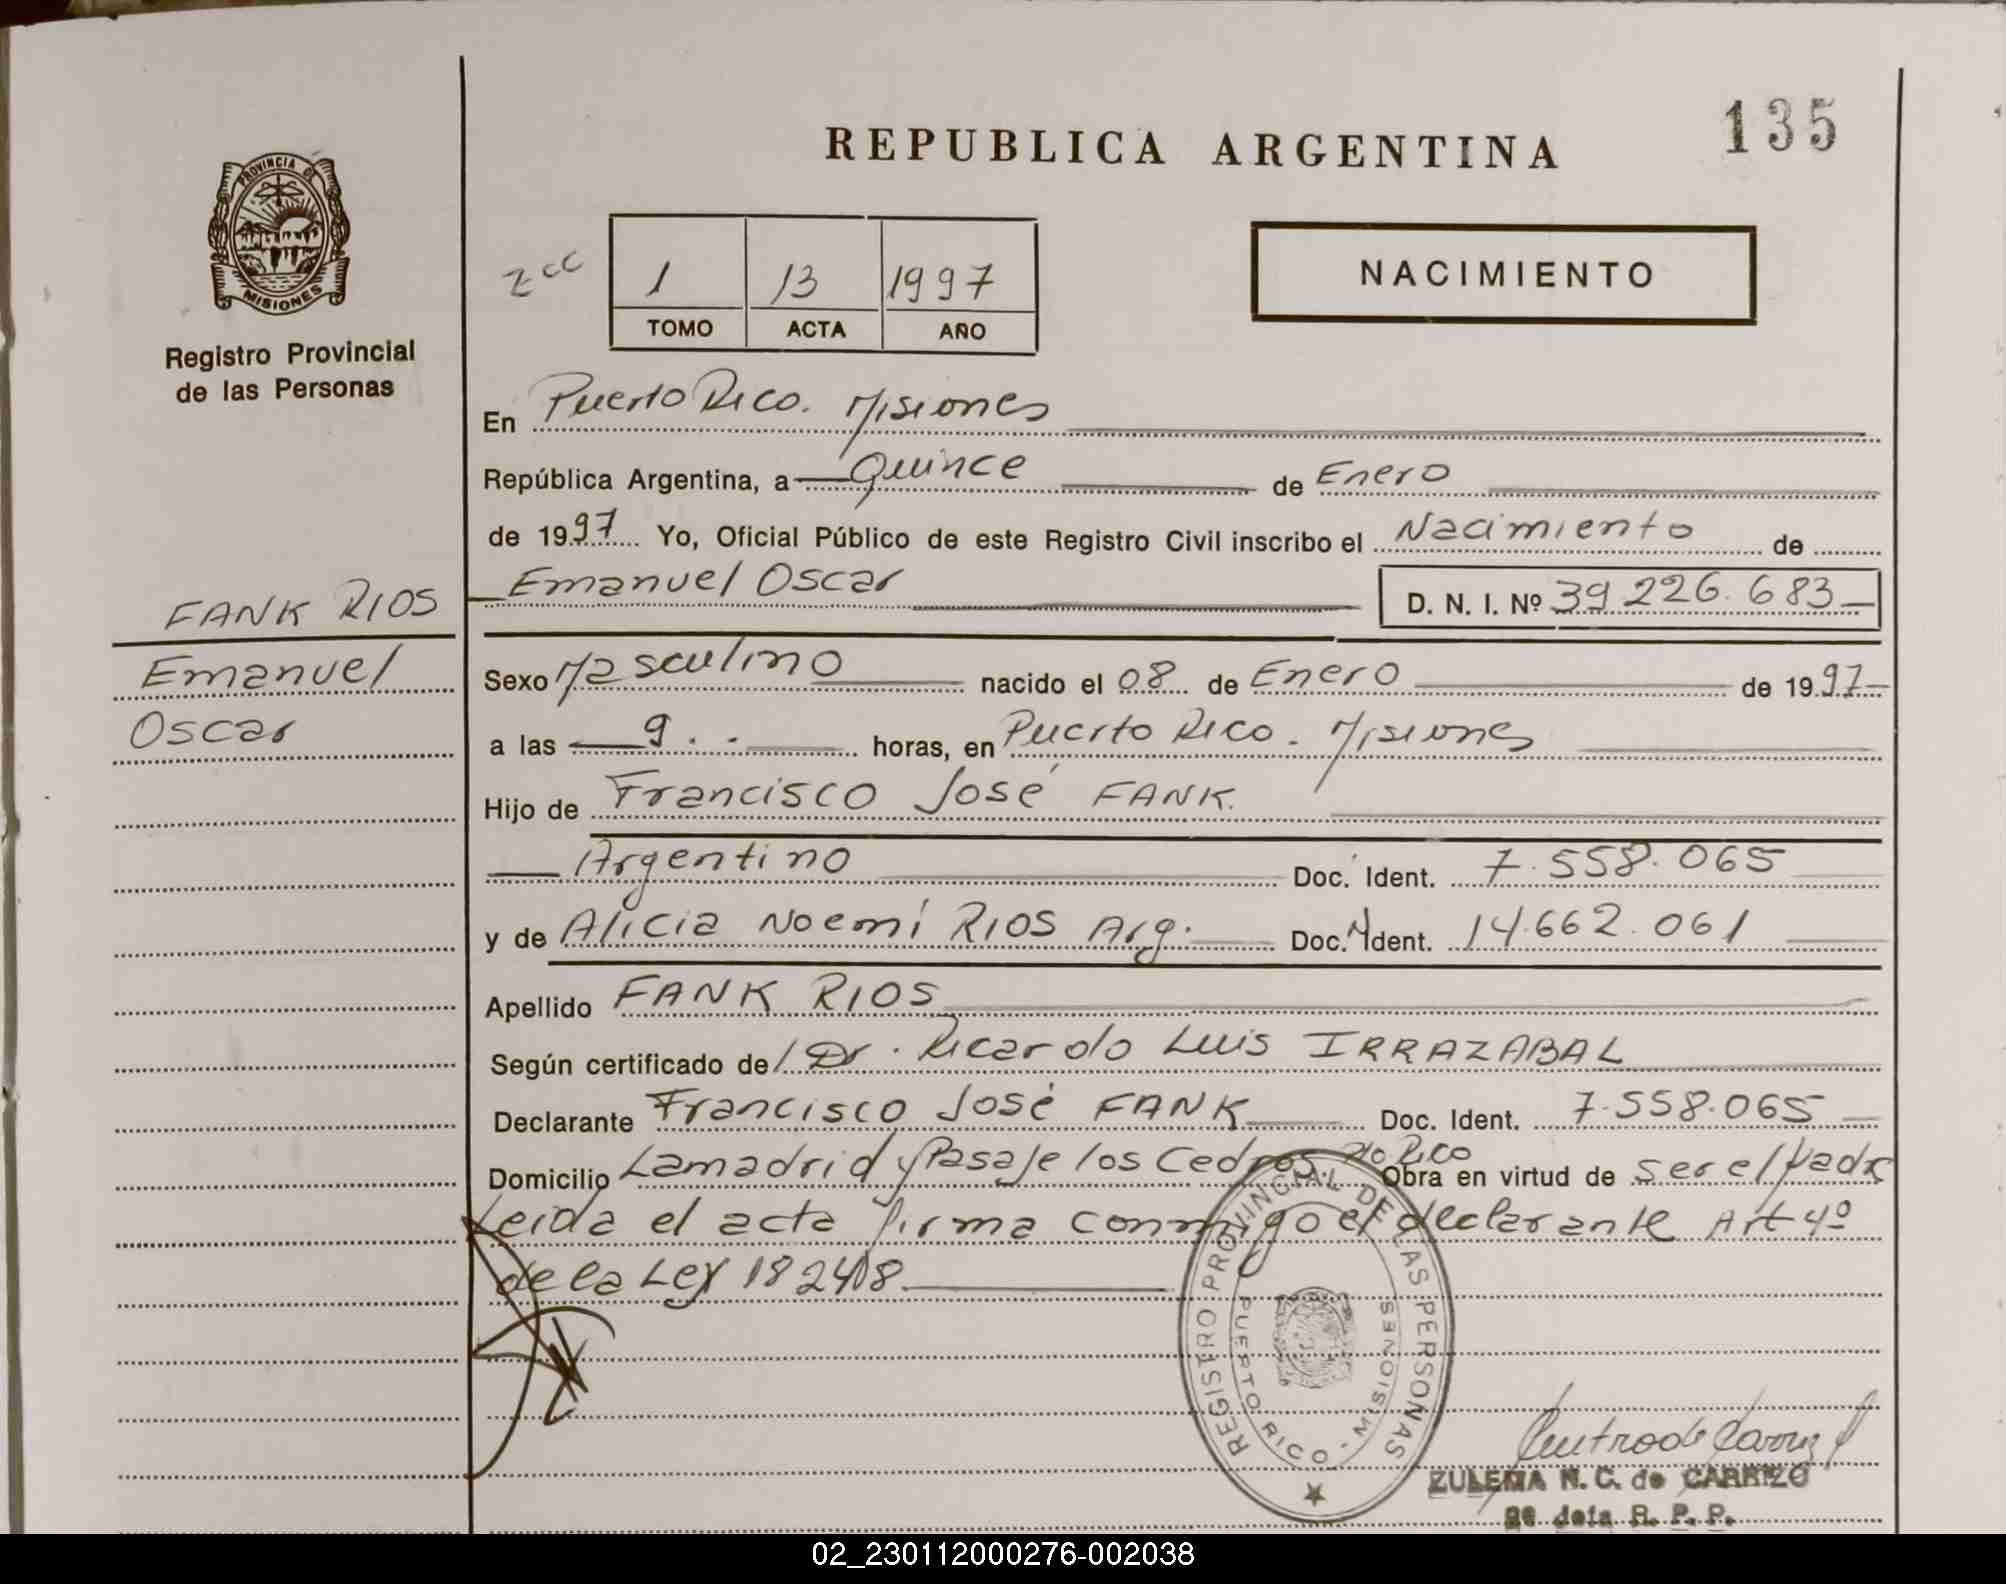 135
REPUBLICA ARGENTINA
PROVINCIA DE
MISIONES
Registro Provincial
de las Personas
zcc
1 13 1997
TOMO ACTA AÑO
NACIMIENTO
En Puerto Rico. Misiones
República Argentina, a Quince de Enero
de 1997 Yo, Oficial Público de este Registro Civil inscribo el Nacimiento de
FANK RIOS
Emanuel
Oscar
Emanuel Oscar D. N. I. Nº 39 226. 683
Sexo Masculino nacido el 08 de Enero de 1997
a las 9. . horas, en Puerto Rico. Misiones
Hijo de Francisco José FANK.
Argentino Doc. Ident. 7. 558. 065
y de Alicia Noemí RIOS Arg. Doc. Ident. 14.662.061
Apellido FANK RIOS
Según certificado del Dr. Ricardo Luis IRRAZABAL
Declarante Francisco José FANK Doc. Ident. 7.558.065
Domicilio Lamadrid y Pasaje los Cedros. Pto Rico Obra en virtud de ser el padre
Leida el acta firma conmigo el declarante Art 4º
de la Ley 18248
REGISTRO PROVINCIAL DE LAS PERSONAS
PUERTO RICO - MISIONES
ZULEMA N. C. de CARRIZO
Jefa R. P. P.
02_230112000276-002038